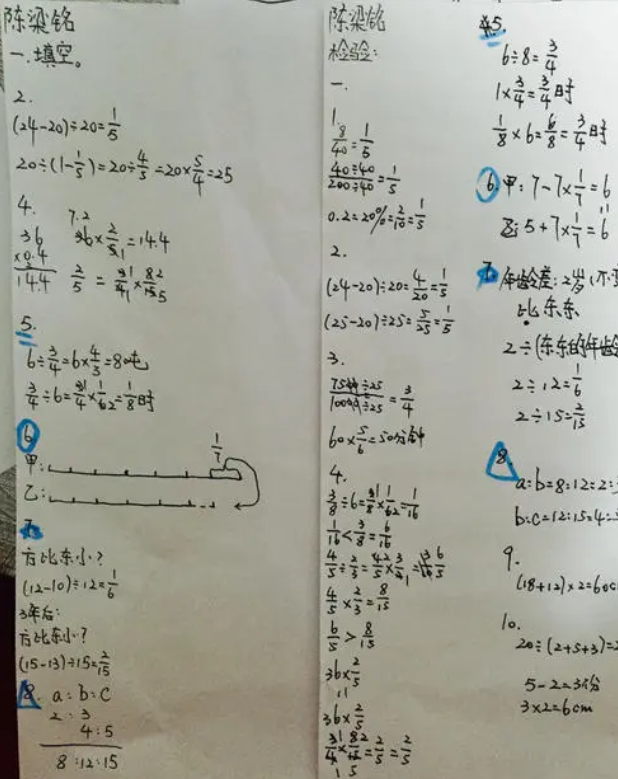 陈梁铭
一.填空。
2.
(24-20)÷20=1/5
20÷(1-1/5)=20÷4/5=20×5/4=25
4.
7.2
36 36×2/5=14.4
×0.4
14.4
2/5
5.
6÷3/4=6×4/3=8吨
3/4÷6=3/4×1/6=1/8时
6
甲:
1/7
乙:
7.
方比东小?
(12-10)÷12=1/6
3年后:
方比东小?
(15-13)÷15=2/15
8. a:b:c
2:3
4:5
8:12:15
陈梁铭
检验:
一.
1.
8/40=1/5
40÷40/200÷40=1/5
0.2=20%=2/10=1/5
2.
(24-20)÷20=4/20=1/5
(25-20)÷25=5/25=1/5
3.
=3/4
60×5/6=50分钟
4.
3/8÷6=3/8×1/6=1/16
1/16<3/8=6/16
4/5÷2/3=4/5×3/2=6/5
4/5×2/3=8/15
6/5>8/15
36×2/5
=
36×2/5
=2/5=2/5
5.
6÷8=3/4
1×3/4=3/4时
1/8×6=6/8=3/4时
6.甲:7-7×1/7=6
=
乙:5+7×1/7=6
7.年龄差:2岁(不
比东东
2÷(东东的年龄
2÷12=1/6
2÷15=2/15
8.
a:b=8:12=2:
b:c=12:15=4:
9.
(18+12)×2=60c
10.
20÷(2+5+3)=
5-2=3份
3×2=6cm